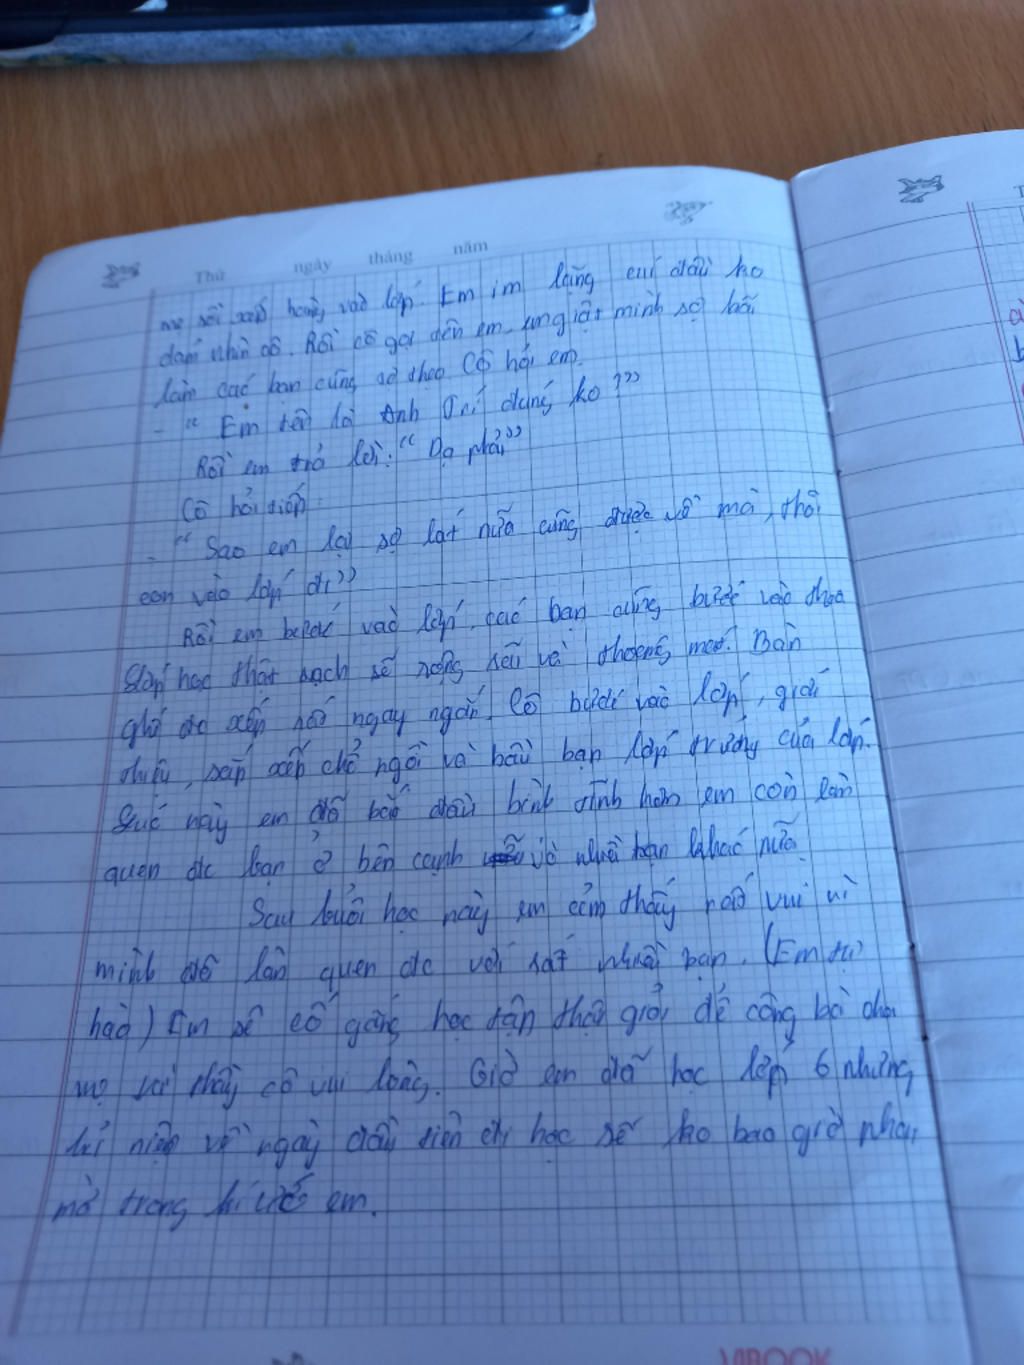 Thứ ngày tháng năm
mẹ rồi xếp hàng vào lớp. Em im lặng cuí đầu ko
dám nhìn cô. Rồi cô gọi đến em, em giật mình sợ hãi
làm các bạn cũng sợ theo Cô hỏi em.
- " Em tên là Anh Trí đúng ko ?"
Rồi em trả lời: " Dạ phải"
Cô hỏi tiếp:
- " Sao em lại sợ lát nữa cũng được về mà, thôi
con vào lớp đi"
Rồi em bước vào lớp, các bạn cũng bước vào theo
Lớp học thật sạch sẽ rộng rãi và thoáng mát. Bàn
ghế đc xếp rất ngay ngắn. Cô bước vào lớp, giới
thiệu, sắp xếp chổ ngồi và bầu bạn lớp trưởng của lớp.
Lúc này em đã bắt đầu bình tĩnh hơn em còn làm
quen đc bạn ở bên cạnh và nhiều bạn khác nữa
Sau buổi học này em cảm thấy rất vui vì
mình đã làm quen đc với rất nhiều bạn. (Em tự
hào) Em sẽ cố gắng học tập thật giỏi để công bố cha
mẹ và thầy cô vui lòng. Giờ em đã học lớp 6 nhưng
kỉ niệm về ngày đầu tiên đi học sẽ ko bao giờ phai
mờ trong kí ức em.
VIBOOK